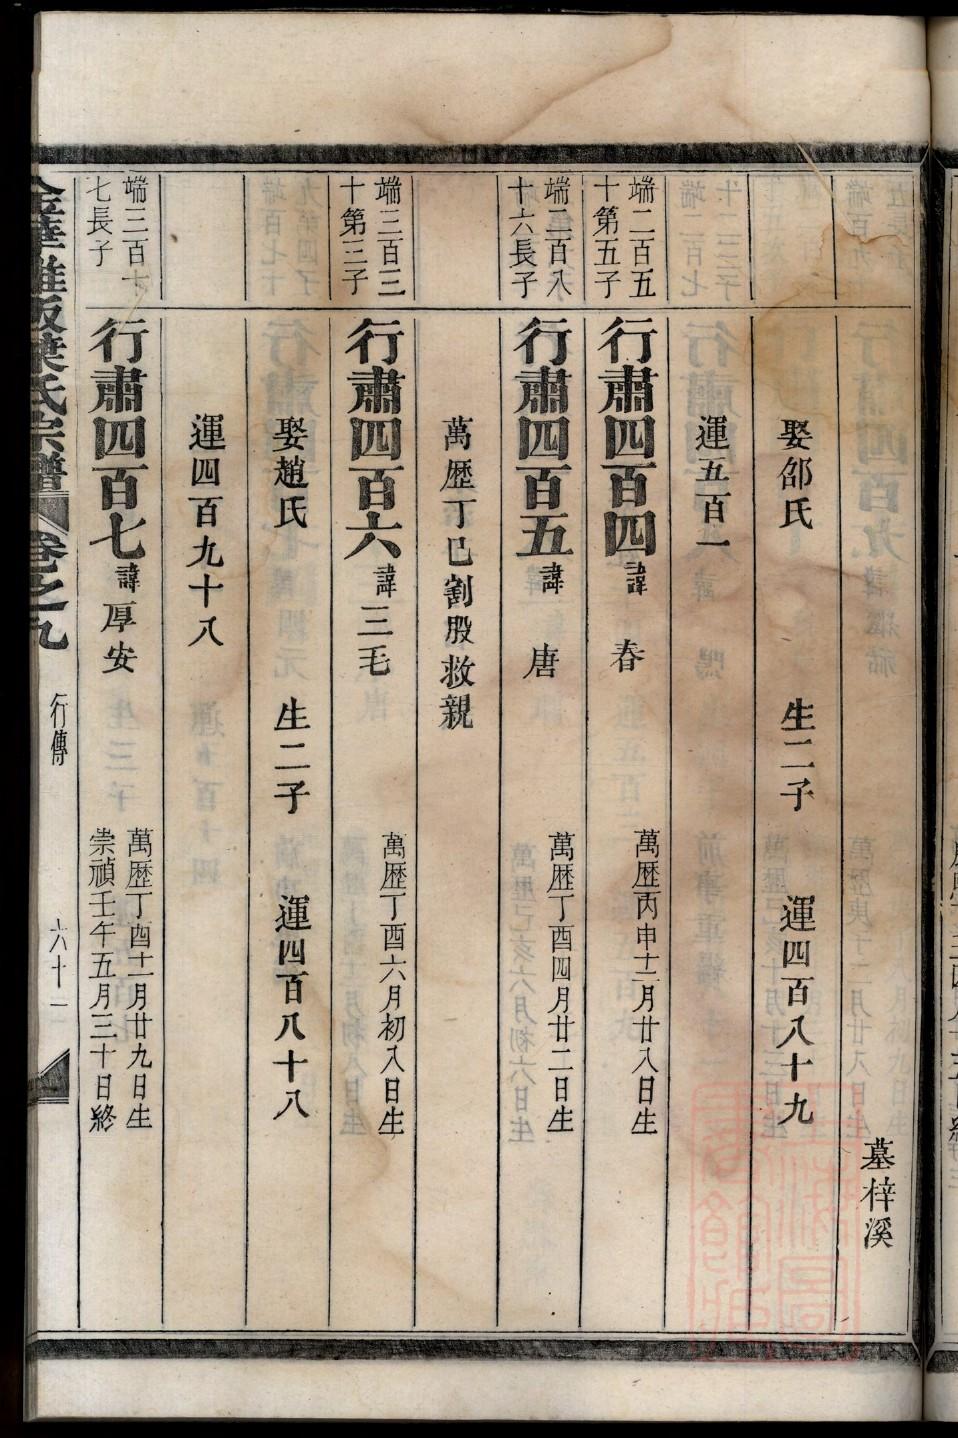 墓梓溪
娶邵氏 生二子 運四百八十九
運五百一
端二百五
十第五子
行肅四百四 諱春 萬歷丙申十二月廿八日生
端二百八
十六長子
行肅四百五 諱唐 萬歷丁酉四月廿二日生
萬歷丁巳割股救親
端三百三
十第三子
行肅四百六 諱三毛 萬歷丁酉六月初八日生
娶趙氏 生二子 運四百八十八
運四百九十八
端三百十
七長子
行肅四百七 諱厚安 萬歷丁酉十一月廿九日生
崇禎壬午五月三十日終
葉氏宗譜 卷之九 行傳 六十一